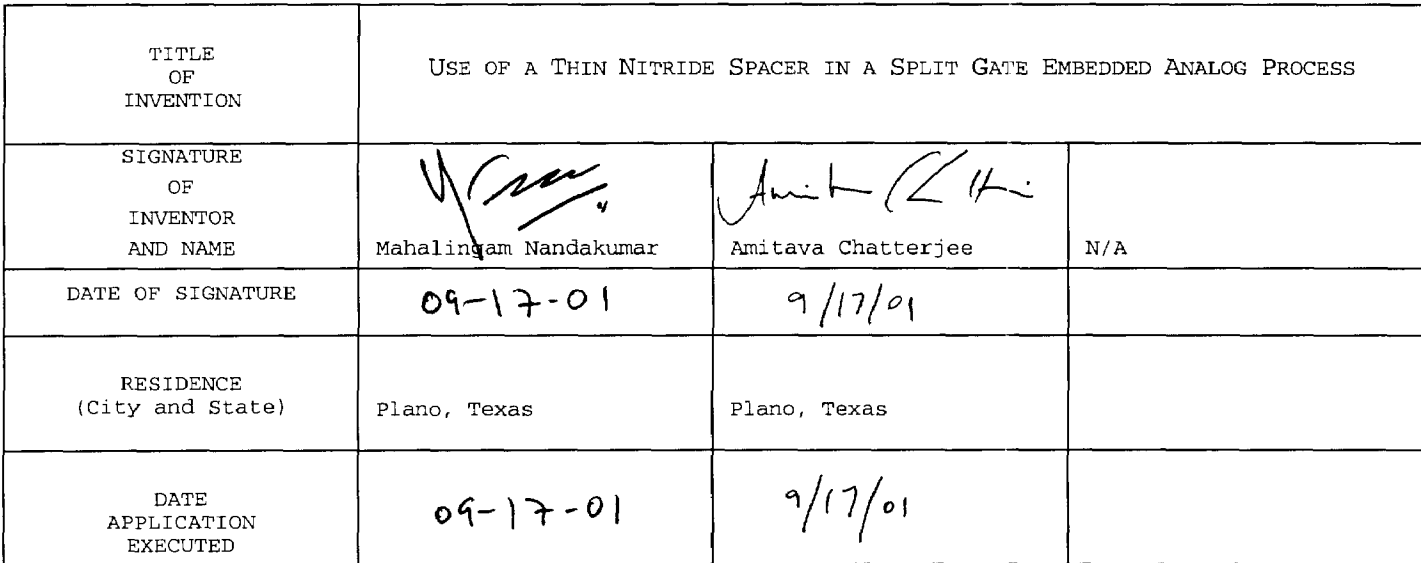 TITLE
OF
INVENTION
USE OF A THIN NITRIDE SPACER IN A SPLIT GATE EMBEDDED ANALOG PROCESS
SIGNATURE
OF
INVENTOR
AND NAME
Mahalingam Nandakumar
Amitava Chatterjee
N/A
DATE OF SIGNATURE
09-17-01
9/17/01
RESIDENCE
(City and State)
Plano, Texas
Plano, Texas
DATE
APPLICATION
EXECUTED
09-17-01
9/17/01